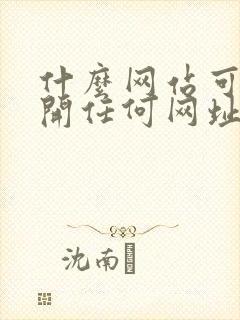 什麼网佔可
開任何网址
沈南